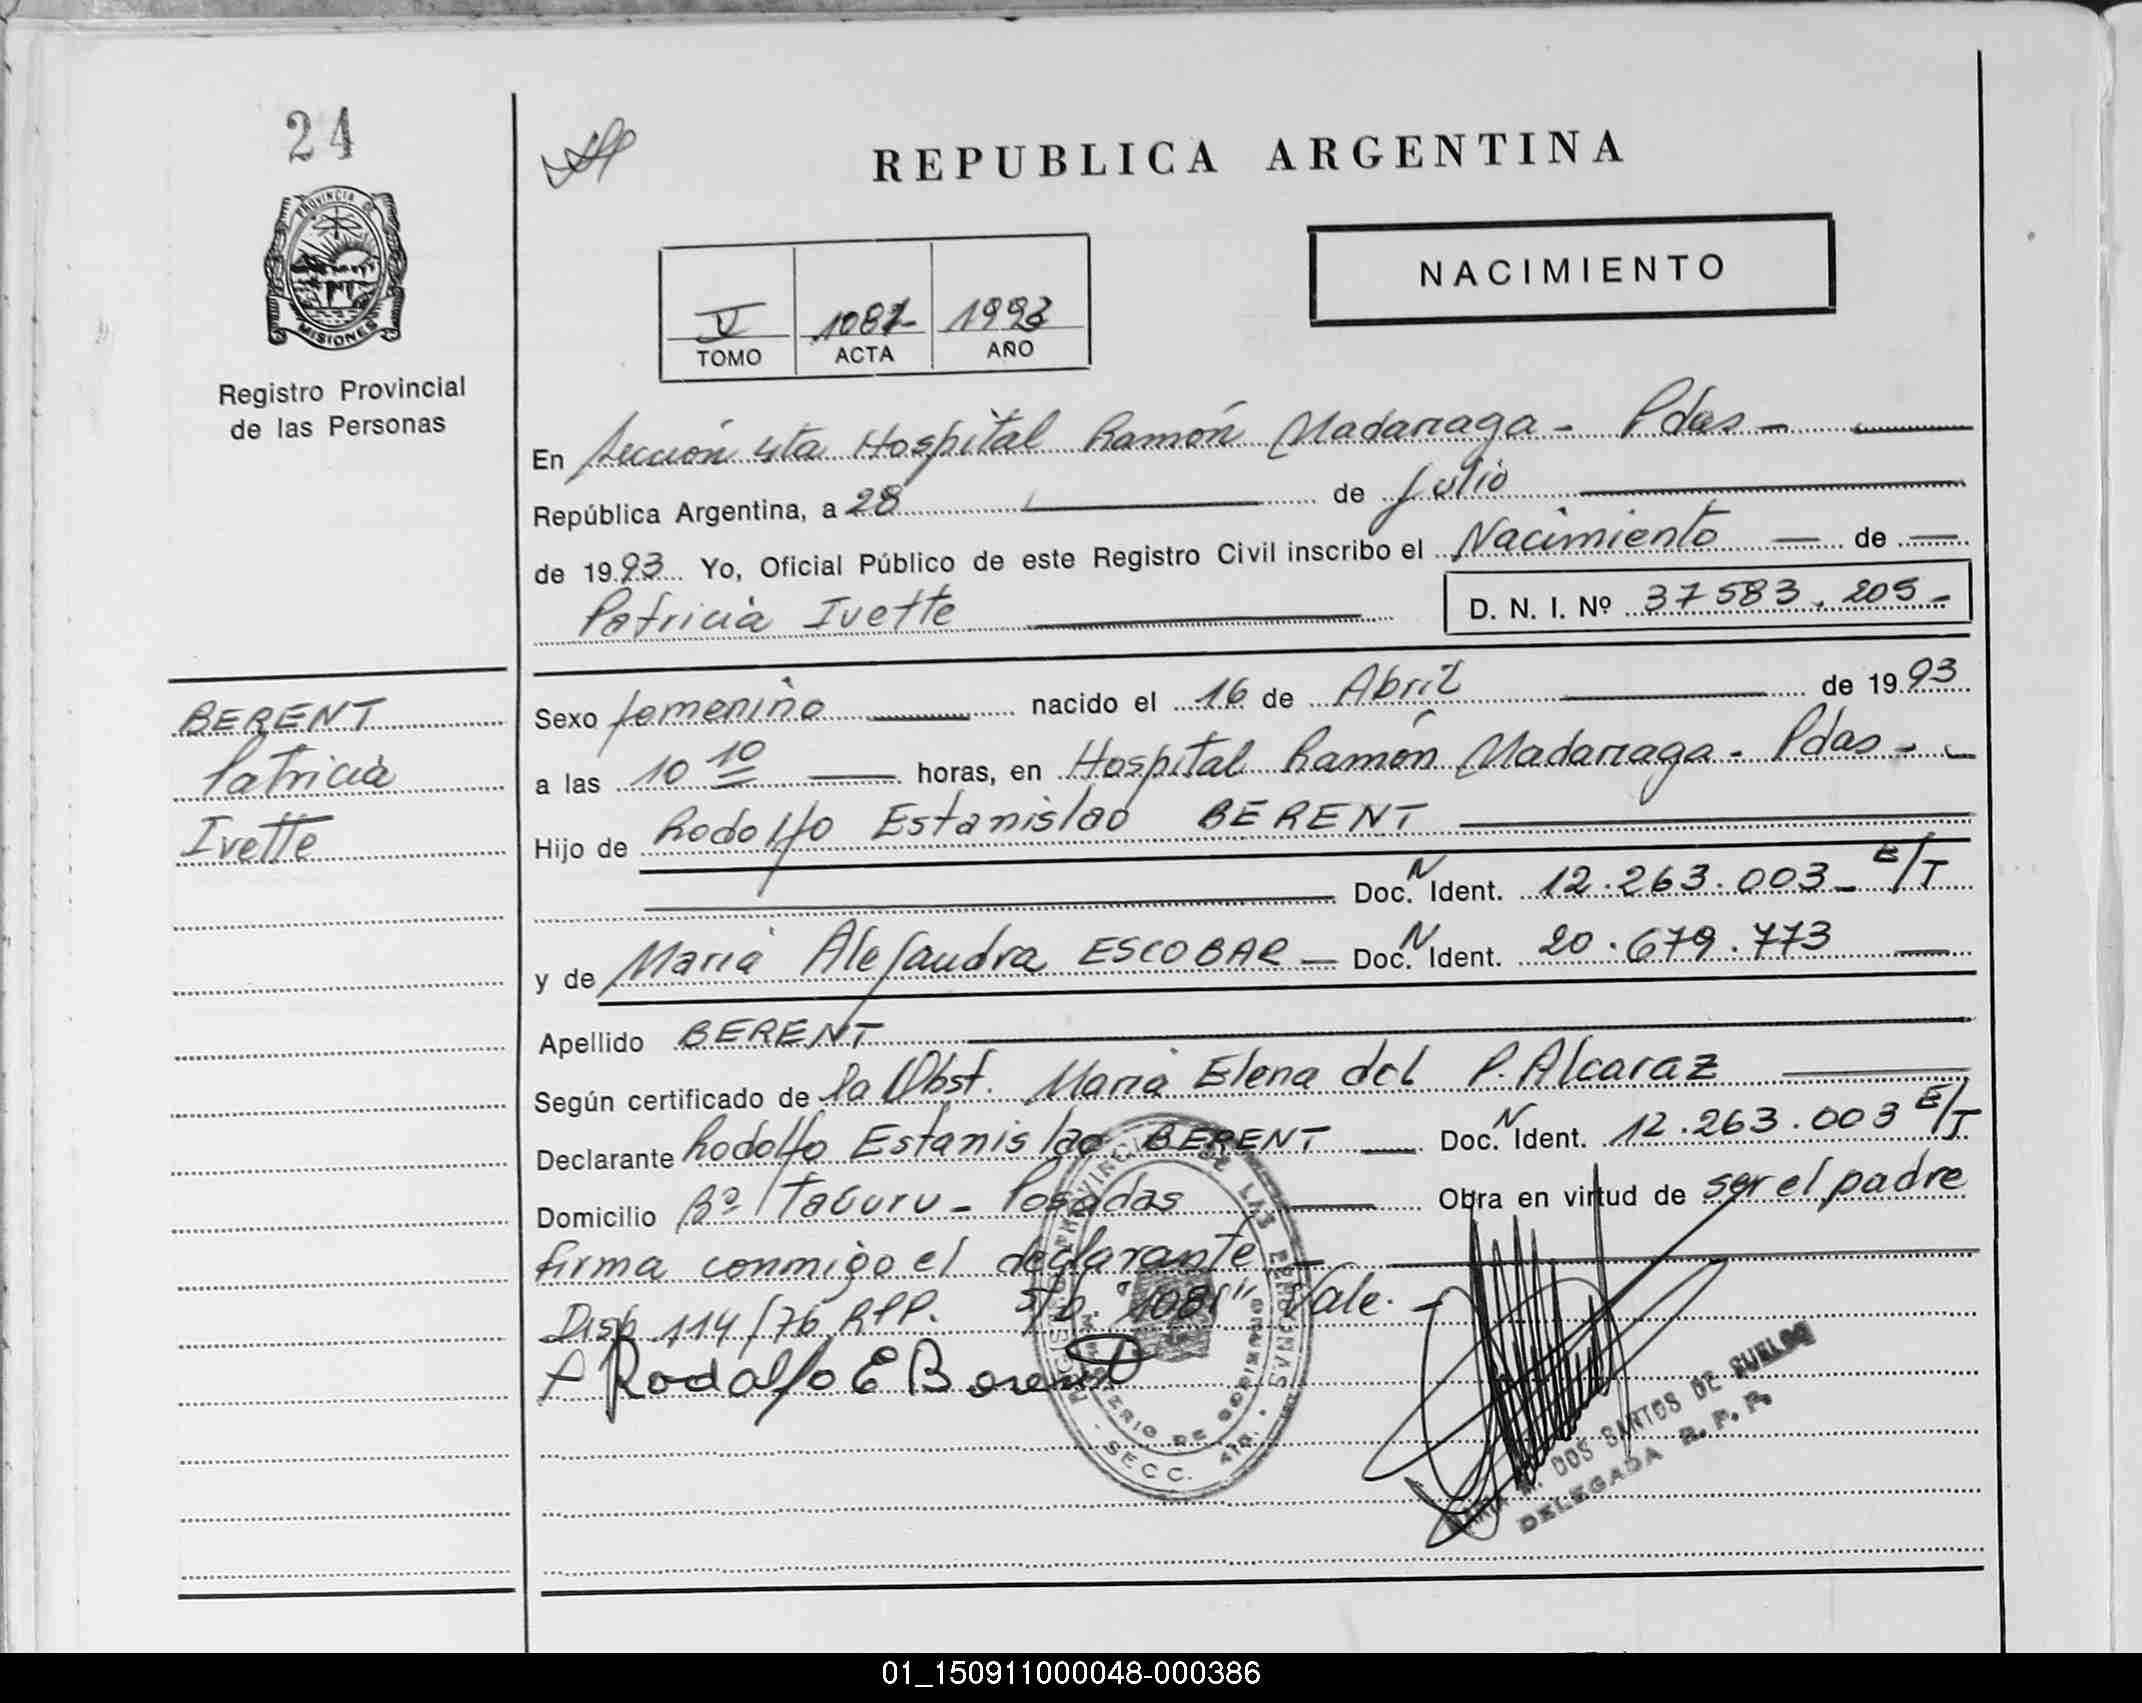 24
REPUBLICA ARGENTINA
PROVINCIA DE
MISIONES
Registro Provincial
de las Personas
NACIMIENTO
V 1081 1993
TOMO ACTA AÑO
En Sección 4ta Hospital Ramón Madariaga - Pdas -
República Argentina, a 28 de Julio
de 1993 Yo, Oficial Público de este Registro Civil inscribo el Nacimiento de
Patricia Ivette D. N. I. Nº 37583.205-
BERENT
Patricia
Ivette
Sexo femenino nacido el 16 de Abril de 1993
a las 10 10 horas, en Hospital Ramón Madariaga - Pdas -
Hijo de Rodolfo Estanislao BERENT
Doc. N Ident. 12.263.003 - E/T
y de María Alejandra ESCOBAR - Doc. N Ident. 20.679.773
Apellido BERENT
Según certificado de la Obst. María Elena del P. Alcaraz
Declarante Rodolfo Estanislao BERENT Doc. N Ident. 12.263.003 E/T
Domicilio Bº Tacuru - Posadas Obra en virtud de ser el padre
firma conmigo el declarante -
Disp 114/76 RPP. S/b "1081" Vale. -
Rodolfo E Berent
PROVINCIAL DE LAS PERSONAS
MINISTERIO DE GOBIERNO
SECC. 4ta.
DOS SANTOS DE SUELDO
DELEGADA R. P. P.
01_150911000048-000386